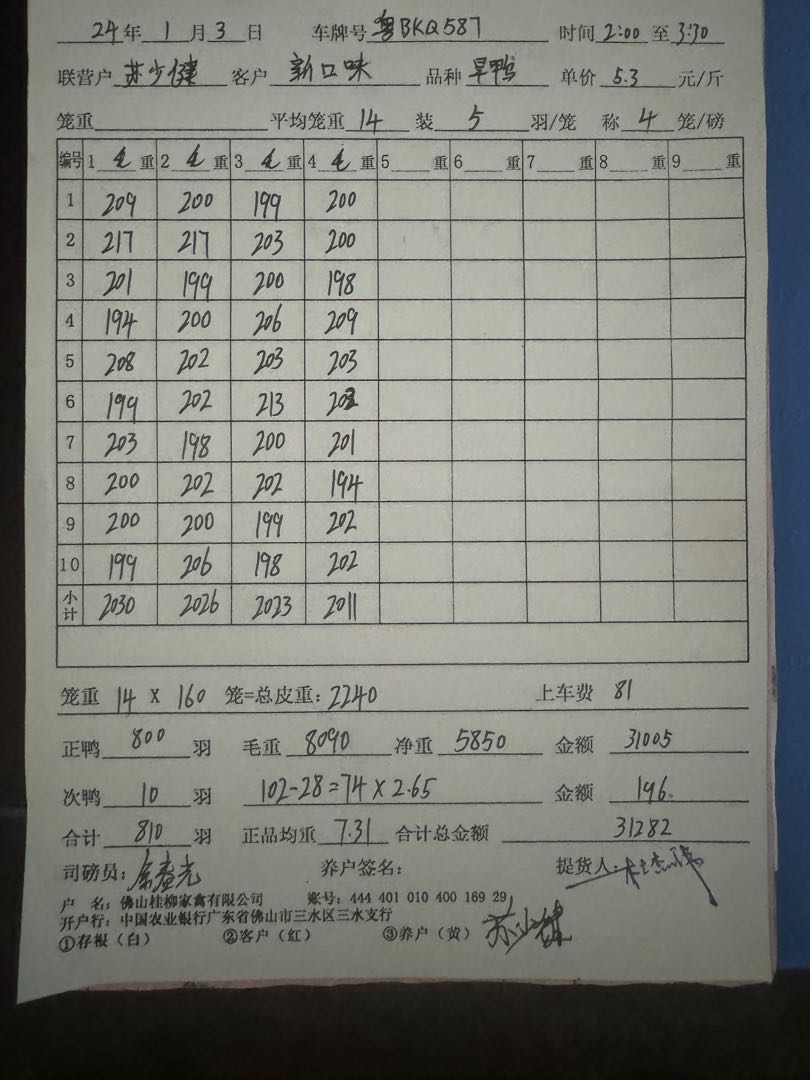 24年 1 月 3 日 车牌号 粤BKQ587 时间 2:00 至 3:30
联营户 苏少健 客户 新口味 品种 旱鸭 单价 5.3 元/斤
笼重 平均笼重 14 装 5 羽/笼 称 4 笼/磅
编号 1 毛 重 2 毛 重 3 毛 重 4 毛 重 5 重 6 重 7 重 8 重 9 重
1 209 200 199 200
2 217 217 203 200
3 201 199 200 198
4 194 200 206 209
5 208 202 203 203
6 199 202 213 202
7 203 198 200 201
8 200 202 202 194
9 200 200 199 202
10 199 206 198 202
小计 2030 2026 2023 2011
笼重 14 X 160 笼=总皮重: 2240 上车费 81
正鸭 800 羽 毛重 8090 净重 5850 金额 31005
次鸭 10 羽 102-28=74×2.65 金额 196.
合计 810 羽 正品均重 7.31 合计总金额 31282
司磅员: 养户签名: 提货人:
户 名: 佛山桂柳家禽有限公司 账号: 444 401 010 400 169 29
开户行: 中国农业银行广东省佛山市三水区三水支行
①存根(白) ②客户(红) ③养户(黄) 苏少健